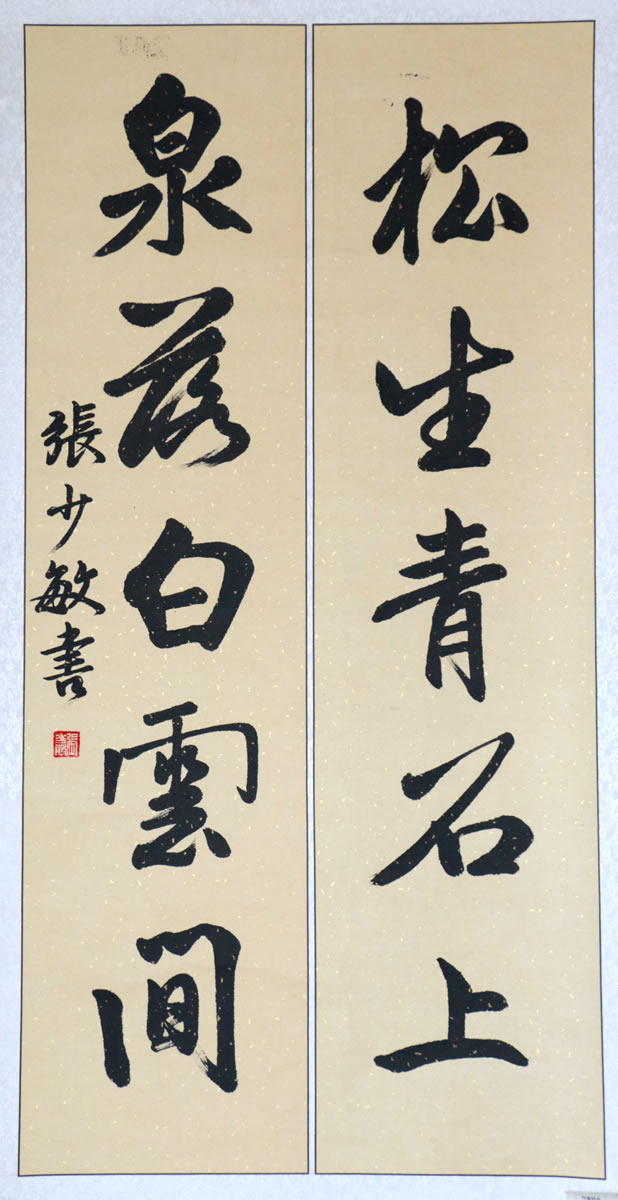 松生青石上
泉落白雲間
張少敏書